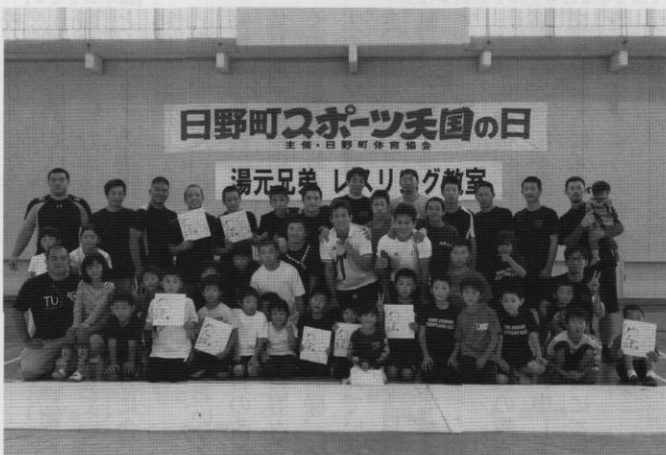 日野町スポーツ天国の日
主催・日野町体育協会
湯元兄弟 レスリング教室
TU